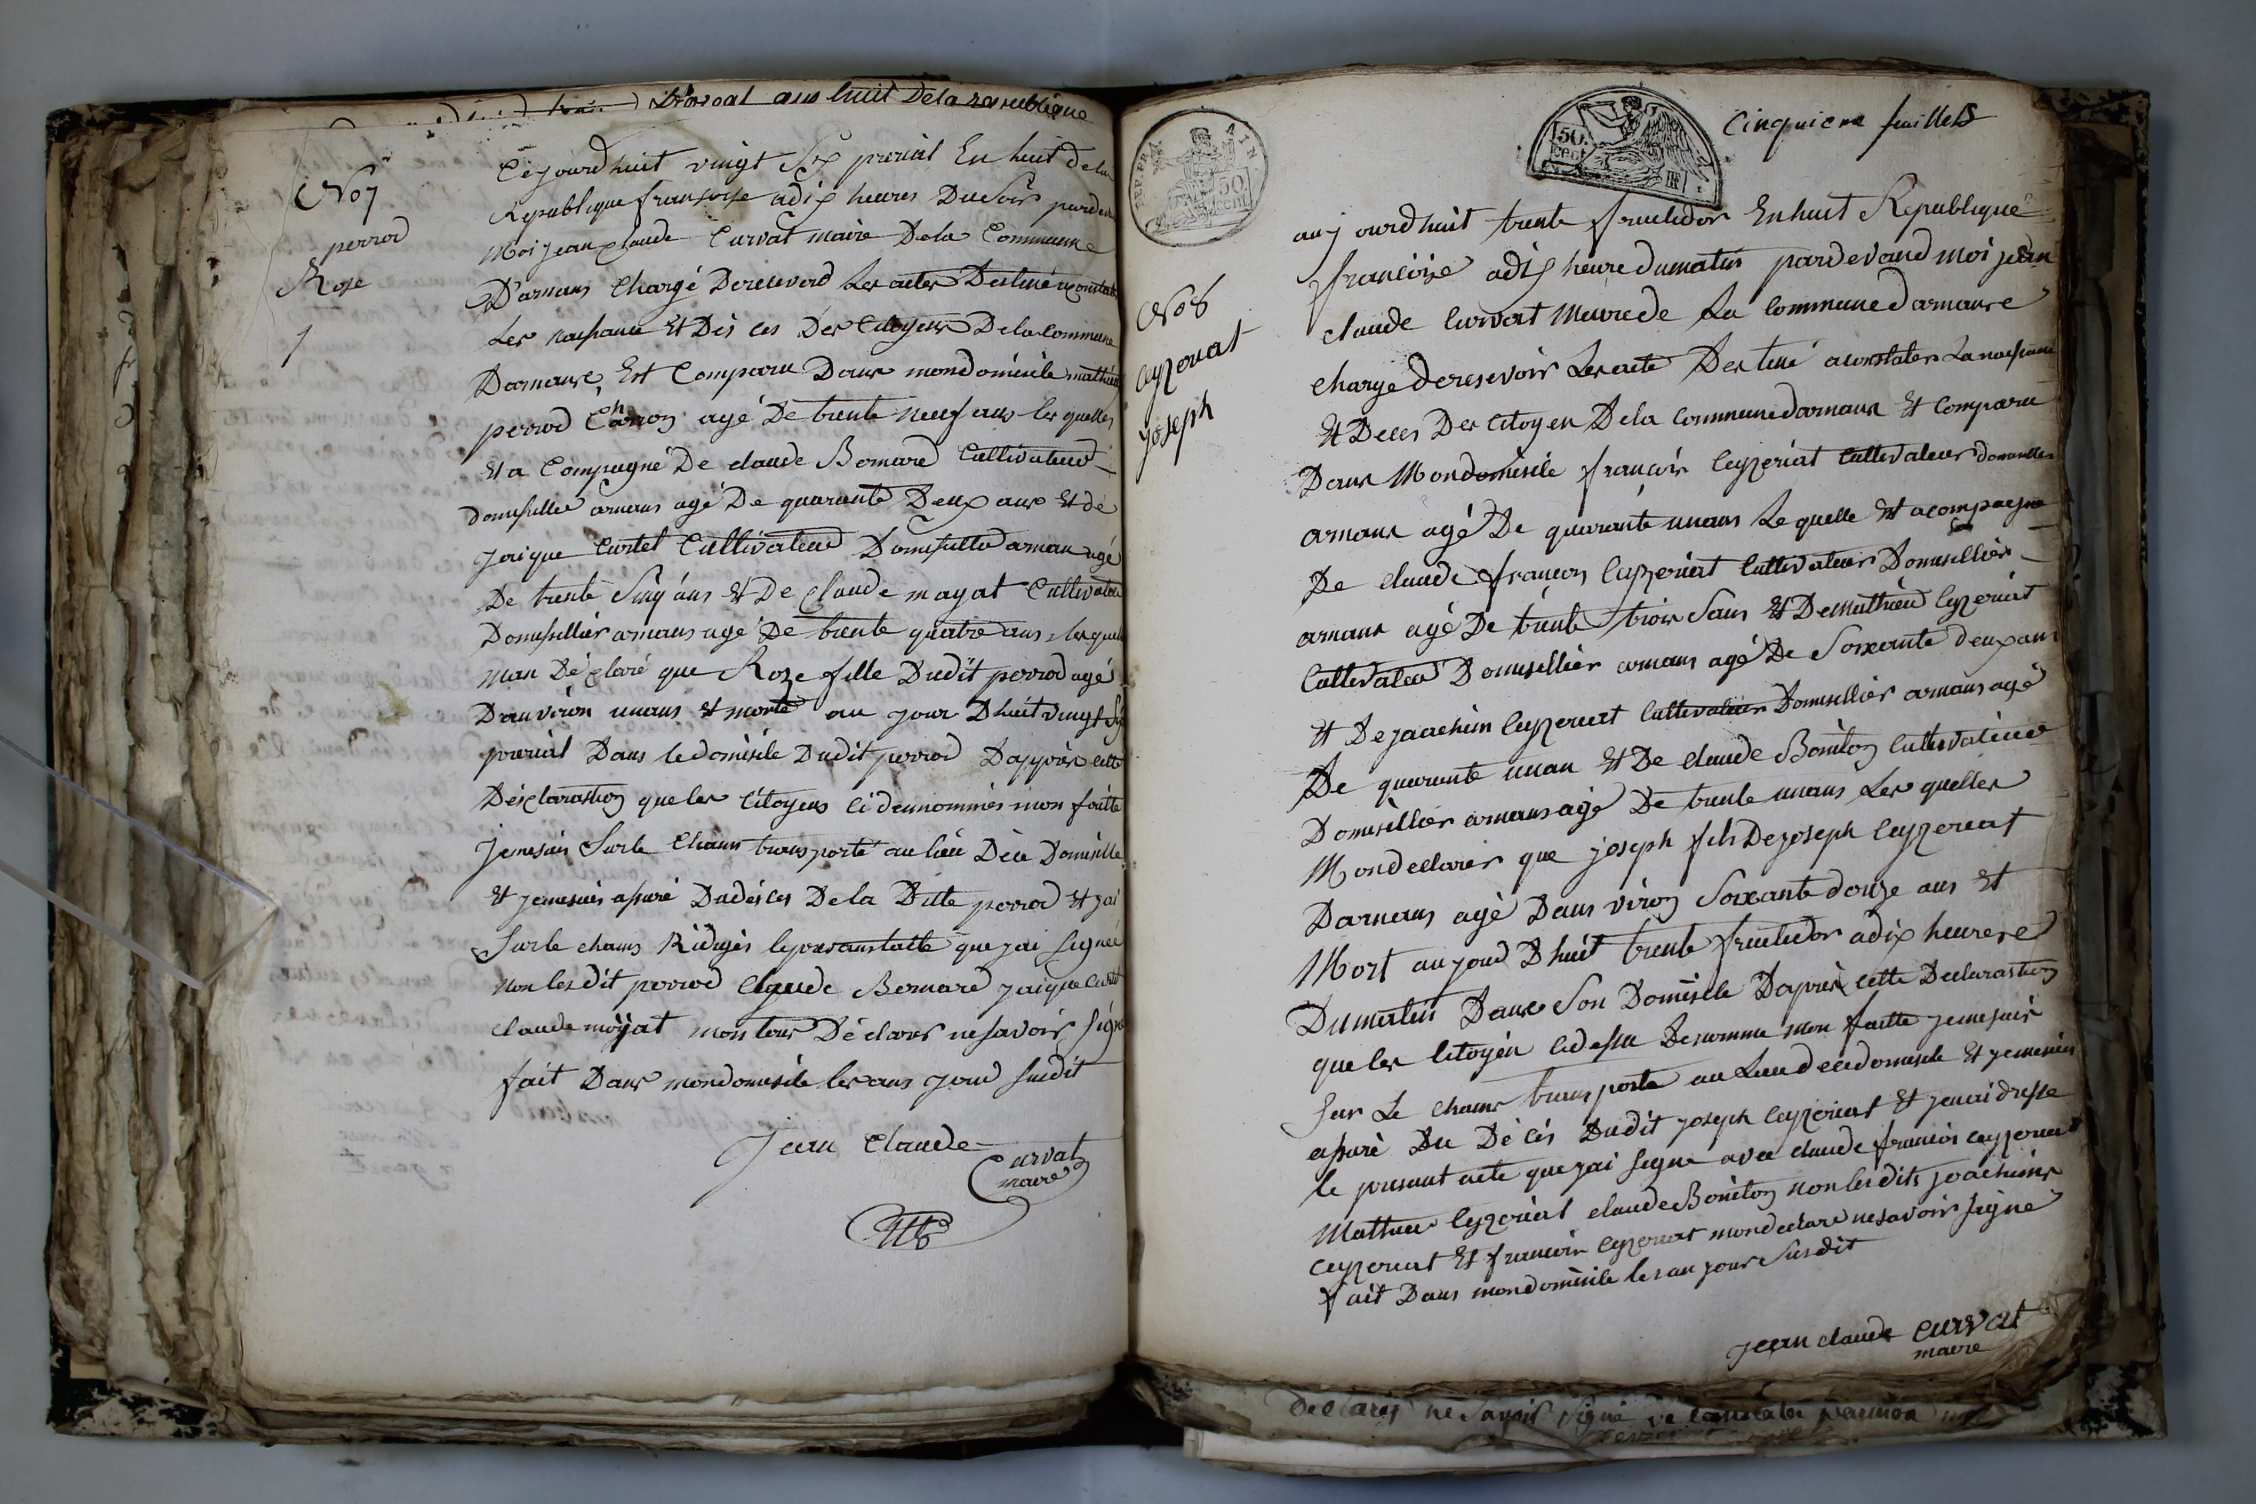 prereal ans huit De la republique
No 7
perrod
Roze
1
Cejourdhuit vingt Six prerial En huit de la
Republique francoise a dix heures Du Soir pardev
Moi jean Claude Curvat maire De la Commune
D'arnans Chargé De recevoird Les actes Destiné a constate
Les naissance Et Dé ces Des Citoyens De la Commune
Darnans, Est Comparu Dans mon domicile mathieu
perrod Charon agé De trente neuf ans les quelles
Et a Compagné De claude Bernard Cultivateur
domisillie arnans agé De quarante Deux ans Et de
jaique Curtet Cultivateur Domisillié arnan agé
De trente Sinq ans Et De Claude mayat Cultivateu
Domisillier arnans agé De trente quatre ans, lesquel
m'an Déclaré que Roze fille Dudit perrod agé
D'anviron un ans Et morte au jour D'huit vingt Six
prerial Dans le domisile Dudit perrod D'apprés cette
Desclarastion que les Citoyens ci denommés mon faitte
je me suis Sur le Chams transporté au lieu De ce Domisille
Et je me suis assuré Du dés ces De la Ditte perrod Et jai
Sur le chams Rédigés le presanstatte que jai Signée
non les dit perrod Claude Bernard jaique Curtet
claude mayat mons tous Déclarer ne savoir Signe
fait Dans mon domisile les ans jour Susdit
Jean Claude Curvat
maire
REP. FRA
AIN
50
cent
50
Cent
Cinquiene feuillets
No 8
ceyzeriat
joseph
au jourdhuit trente fructidor En huit Republique
francoise a dix heure du matin pardevand moi jean
claude Curvat Maire de La Commune d'arnans
charge de resevoir Les acte Destiné a constater La naissance
Et Deces Des Citoyen De la Commune darnans Et Comparu
Dans Mon domisile francois Ceyzeriat Cultivateur domisillier
arnans agé De quarante un ans Le quelle Et acompagne
De claude francois Ceyzeriat Cultivateur Domisillier
arnans agé De trente trois Sans Et De Mathieu Ceyzeriat
Cultivateu Domisillier arnans agé De Soixante deux ans
Et De jaachim Ceyzeriat Cultivateur Domisillier arnans agé
De quarante un an Et De claude Boniton Cultivateur
Domisillier arnans agé De trente un ans Les quelles
Mon declarer que joseph fils De joseph Ceyzeriat
Darnans agé Dans viron Soixante douze ans Et
Mort au jourd D huit trente fructidor a dix heurese
Du matin Dans Son Domisile Daprés cette Declarastion
que les Citoyen ci dessu Denomme mon faitte je me suis
Sur Le chams transporte au Lieu de ce domisile Et je me suis
assuré Du Dé cés Dudit joseph Ceyzeriat Et jen ai dresse
le presant acte que jai Signe avec claude francois ceyzeriat
Mathieu Ceyzeriat claude Boniton non les dits joachims
ceyzeriat Et francois ceyzeriat mon declare ne savoir signe
fait Dans mon domisile les an jour Susdit
jean claude curvat
maire
declarer ne Savoir Signé